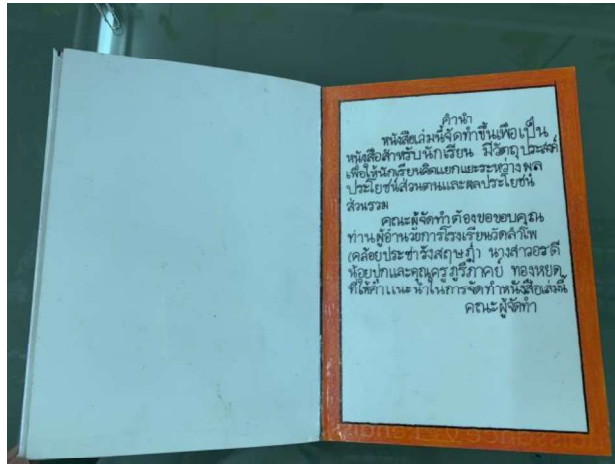 คำนำ
หนังสือเล่มนี้จัดทำขึ้นเพื่อเป็น
หนังสือสำหรับนักเรียน มีวัตถุประสงค์
เพื่อให้นักเรียนคิดแยกแยะระหว่างผล
ประโยชน์ส่วนตนและผลประโยชน์
ส่วนรวม
คณะผู้จัดทำต้องขอขอบคุณ
ท่านผู้อำนวยการโรงเรียนวัดลำโพ
(คล้อยประชารังสฤษฎ์) นางสาวอรดี
น้อยปุกและคุณครูภูรีภาคย์ ทองหยด
ที่ให้คำแนะนำในการจัดทำหนังสือเล่มนี้
คณะผู้จัดทำ